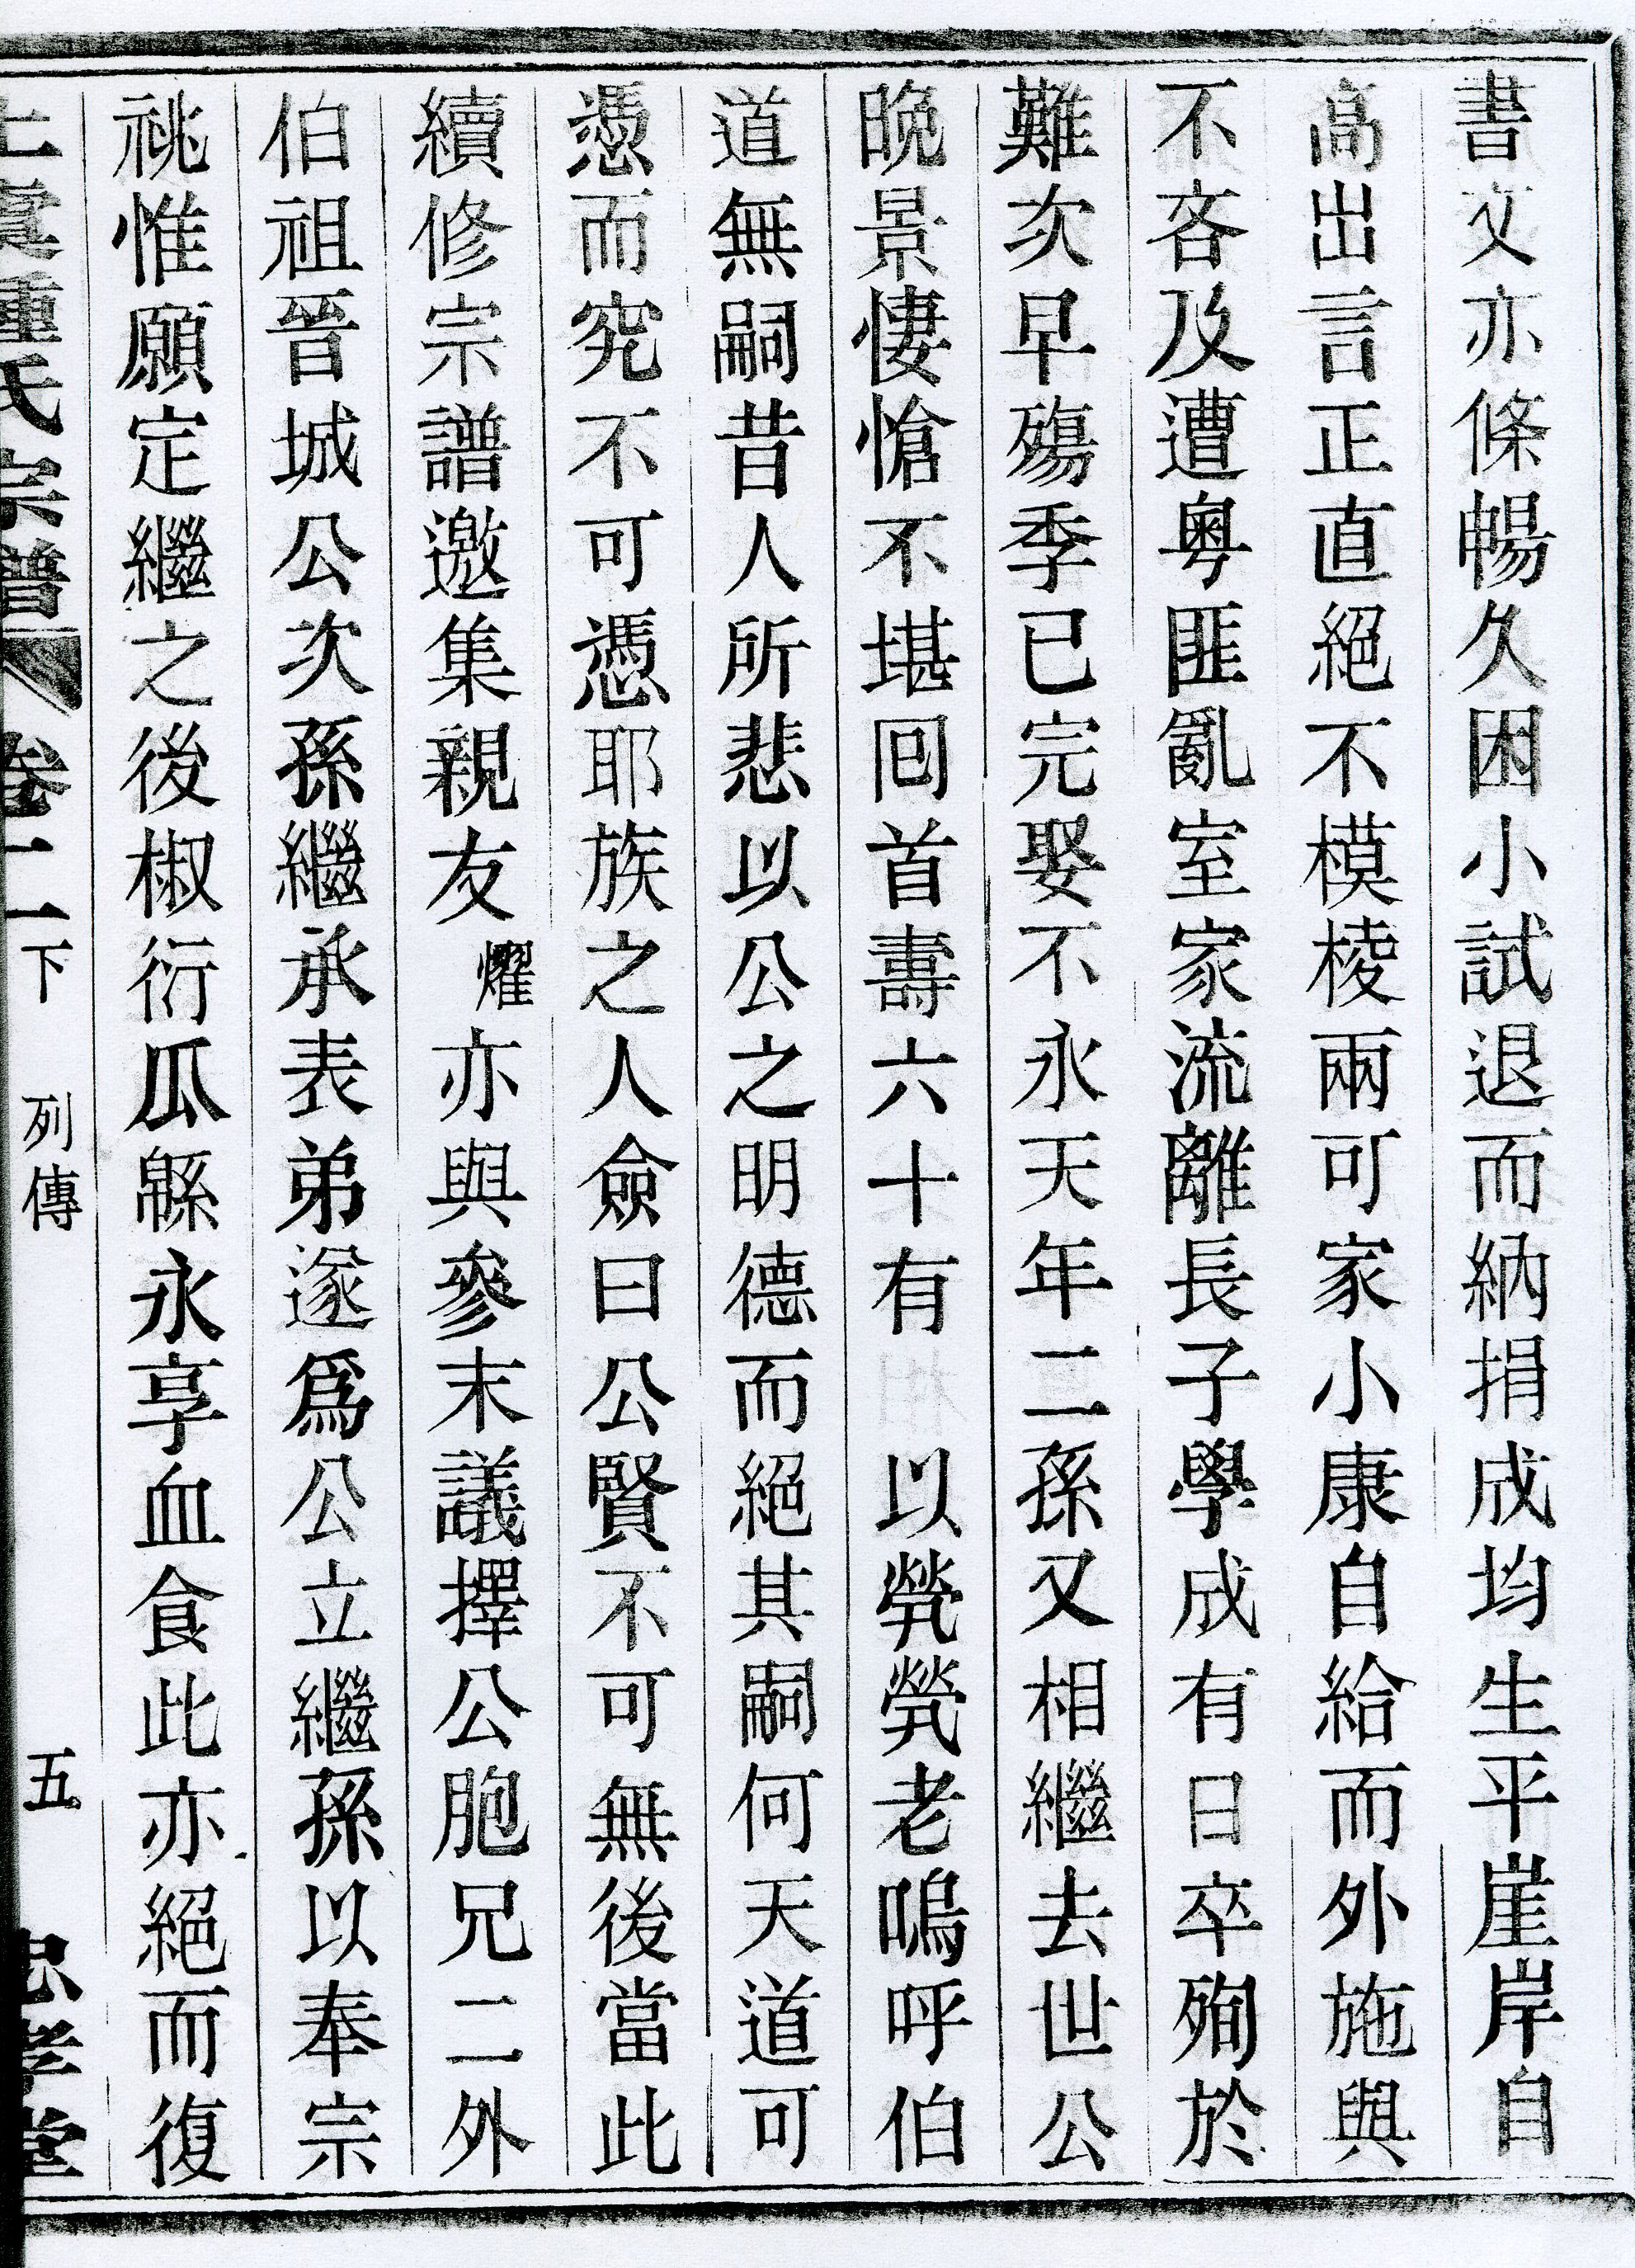 書文亦條暢久困小試退而納捐成均生平崖岸自
高出言正直絕不模棱兩可家小康自給而外施與
不吝及遭粤匪亂室家流離長子學成有日卒殉於
難次早殤季已完娶不永天年二孫又相繼去世公
晚景悽愴不堪回首壽六十有 以煢煢老嗚呼伯
道無嗣昔人所悲以公之明德而絕其嗣何天道可
憑而究不可憑耶族之人僉曰公賢不可無後當此
續修宗譜邀集親友燿亦與參末議擇公胞兄二外
伯祖晉城公次孫繼承表弟遂爲公立繼孫以奉宗
祧惟願定繼之後椒衍瓜緜永享血食此亦絕而復
氏宗譜 卷二下 列傳 五 孝堂